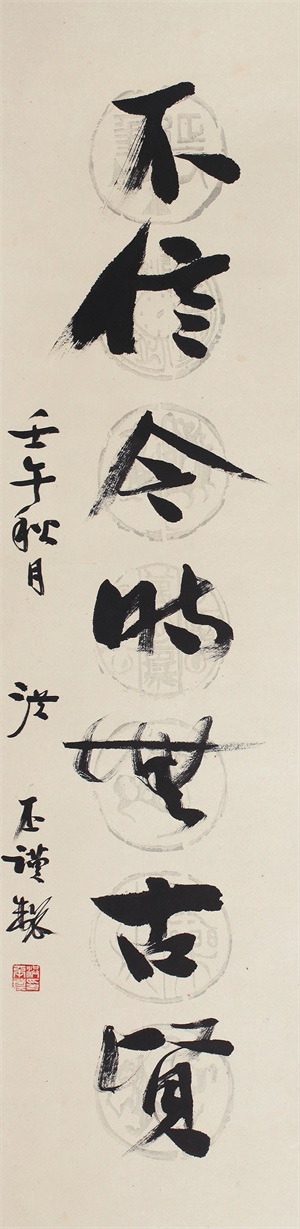 不信今時無古賢
壬午秋月 洪丕謨製